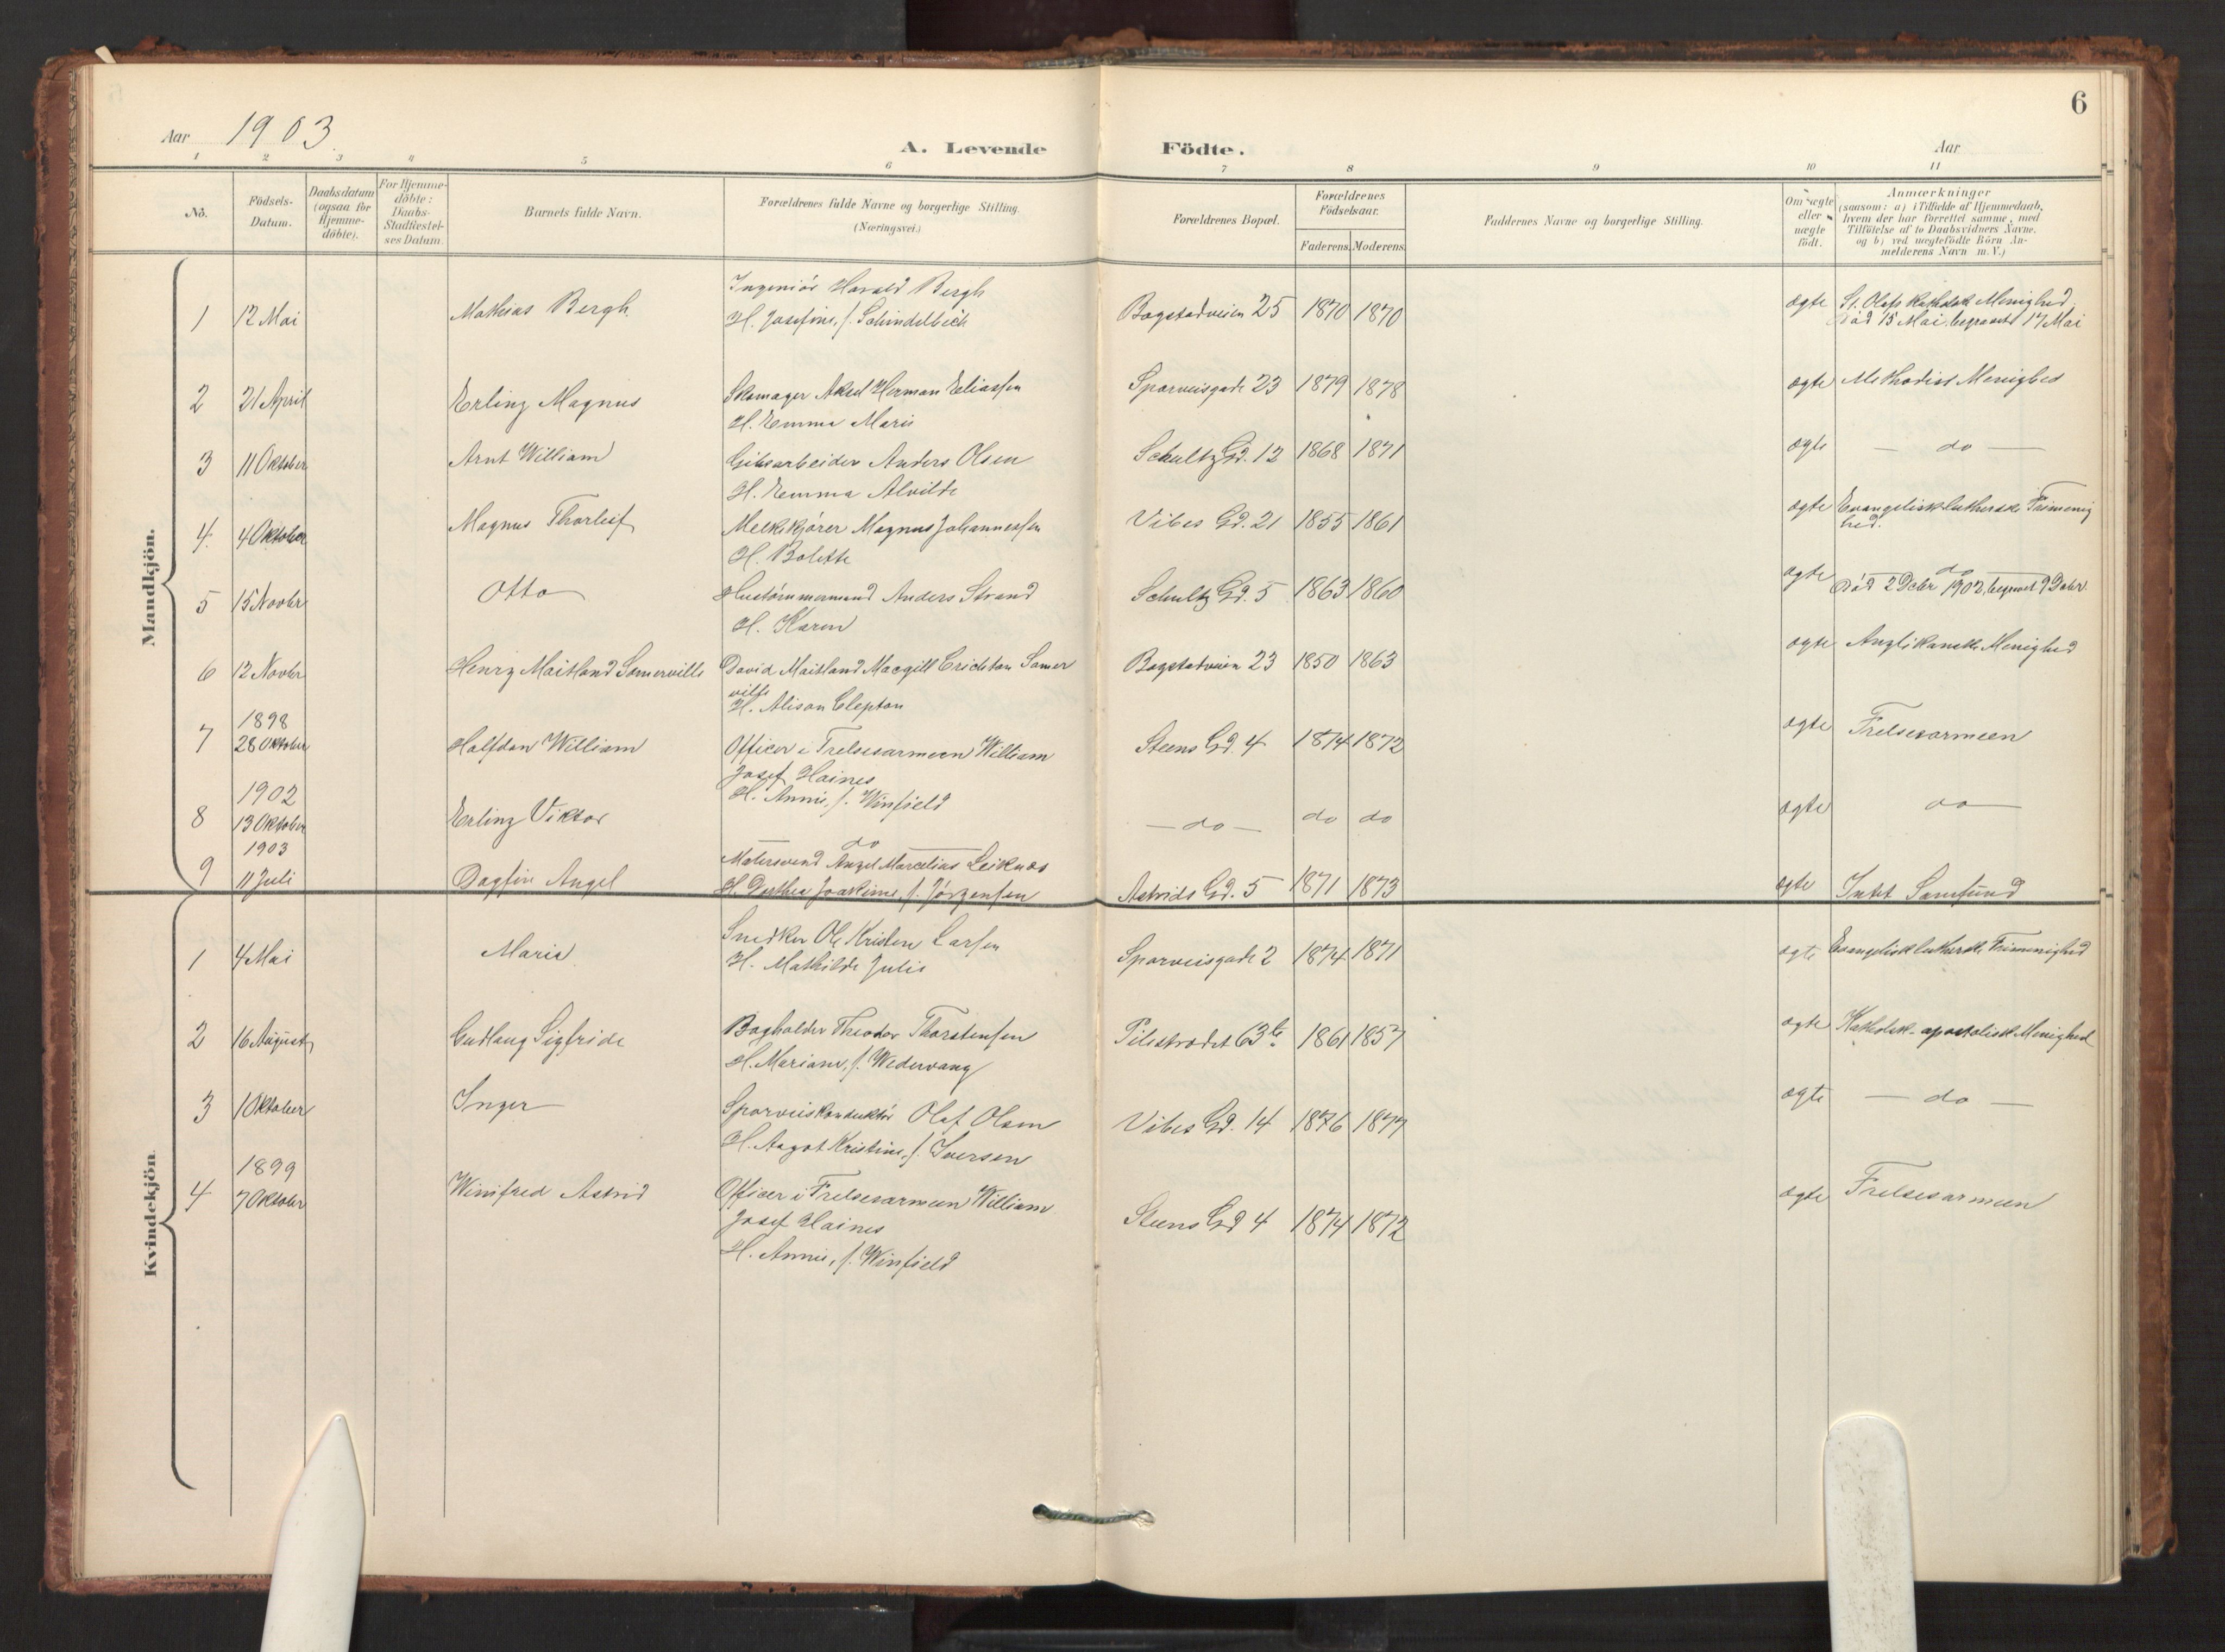 6
Aar 1903. A. Levende Födte. Aar
1 2 3 4 5 6 7 8 9 10 11
No. Födsels-Datum. Daabsdatum (ogsaa for Hjemme-döbte). For Hjemme-döbte: Daabs-Stadfæstel-ses Datum. Barnets fulde Navn. Forældrenes fulde Navne og borgerlige Stilling. (Næringsvei.) Forældrenes Bopæl. Forældrenes Födselsaar. Faderens. Moderens. Faddernes Navne og borgerlige Stilling. Om ægte eller uægte födt. Anmærkninger (saasom: a) i Tilfælde af Hjemmedaab, hvem der har forrettet samme, med Tilföielse af to Daabsvidners Navne. og b) ved uægtefödte Börn An-melderens Navn m. V.)
Mandkjön.
1 12 Mai Mathias Bergh. Ingeniör Harald Bergh
H. Josefine, f. Schindelbeck Bogstadveien 25 1870 1870 ægte St. Olafs katholsk Menighed.
Död 15 Mai. begravet 17 Mai
2 21 April Erling Magnus Skomager Aksel Herman Eliassen
H. Emma Marie Sporveisgade 23 1879 1878 ægte Methodist Menighed
3 11 Oktober Arnt William Gibsarbeider Anders Olsen
H. Emma Alvilde Schultz Gd. 12 1868 1871 ægte — do —
4. 4 Oktober Magnus Thorleif Melkekjører Magnus Johannessen
H. Bolette Vibes Gd. 21 1855 1861 ægte Evangelisk luthersk Frimenig
hed.
5 15 Novbr Otto Hustømmermand Anders Strand
H. Karen Schultz Gd. 5 1863 1860 ægte do
Död 2 Debr 1902, begravet 9 Debr.
6 12 Novbr Henry Maitland Somerville David Maitland Macgill Crichton Somer
ville
H. Alison Clepton Bogstadveien 23 1850 1863 ægte Anglikanske Menighed
7 1898
28 Oktober Halfdan William Officer i Frelsesarmeen William
Josef Haines
H. Annie, f. Winfield Steens Gd. 4 1874 1872 ægte Frelsesarmeen
8 1902
13 Oktober Erling Viktor do — do — do do ægte do
9 1903
11 Juli Dagfin Angel Malersvend Angel Marcelius Leiknes
H. Dorthea Joakime, f. Jørgensen Astrids Gd. 5 1871 1873 ægte Intet Samfund
Kvindekjön.
1 4 Mai Marie Snedker Ole Kristen Larsen
H. Mathilde Julie Sporveisgade 2 1874 1871 ægte Evangelisk luthersk Frimenighed
2 16 August Gudlaug Sigfride Bogholder Theodor Thorstensen
H. Mariane, f. Wedervang Pilestrædet 63 b. 1861 1857 ægte Katholsk-apostolisk Menighed
3 1 Oktober Inger Sporveiskonduktör Olaf Olsen
H. Aagot Kristine, f. Iversen Vibes Gd. 14 1876 1877 ægte — do —
4 1899
7 Oktober Winifred Astrid Officer i Frelsesarmeen William
Josef Haines
H. Annie, f. Winfield Steens Gd 4 1874 1872 ægte Frelsesarmeen